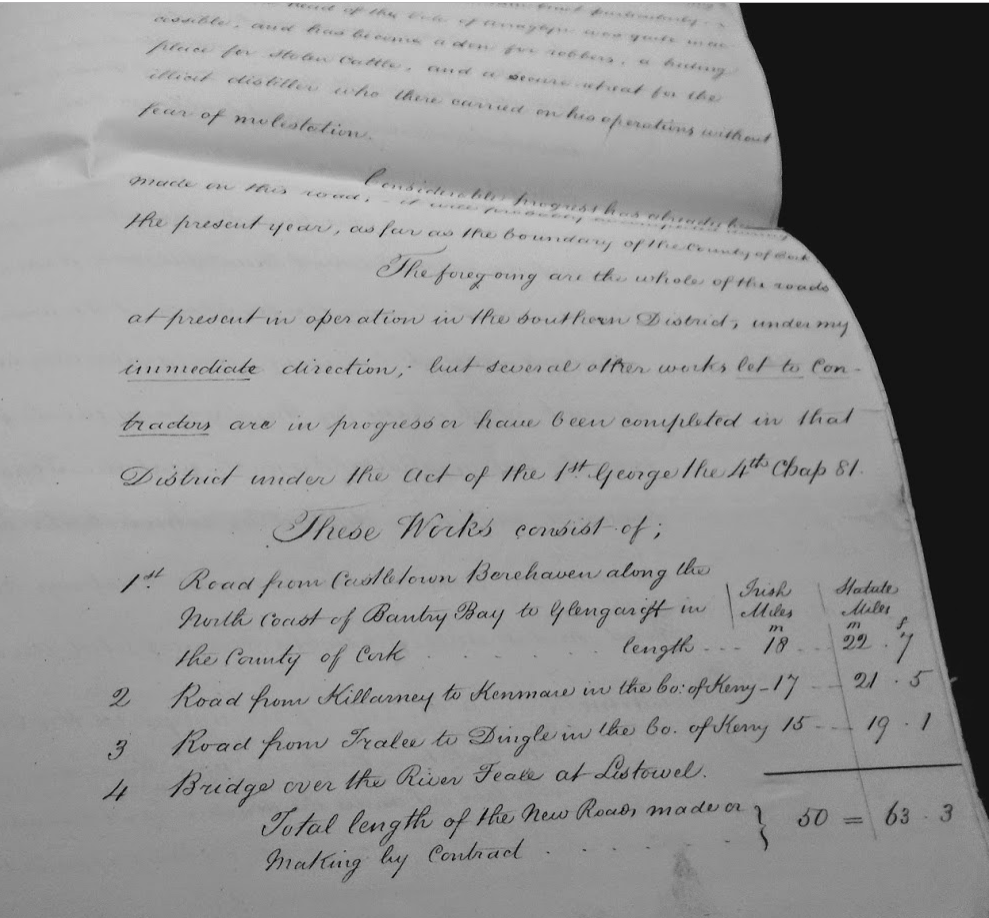 head of the Vale of Araglyn was quite inac
cessible, and has become a den for robbers, a hiding
place for Stolen Cattle, and a secure retreat for the
illicit distiller who there carried on his operations without
fear of molestation.
Considerable progress has already been
made on this road, - it will probably be completed during
the present year, as far as the boundary of the County of Cork
The foregoing are the whole of the roads
at present in operation in the Southern District, under my
immediate direction; but several other works let to Con-
tractors are in progress or have been completed in that
District under the Act of the 1st. George the 4th Chap 81.
These Works consist of;
1st Road from Castletown Berehaven along the
Irish Miles Statute Miles
North Coast of Bantry Bay to Glengariff in
m m f
the County of Cork . . . . . length - - - 18 . . 22 . 7
2 Road from Killarney to Kenmare in the Co: of Kerry - 17 - - 21 . 5
3 Road from Tralee to Dingle in the Co. of Kerry 15 - - - 19 . 1
4 Bridge over the River Feale at Listowel.
Total length of the New Roads made or } 50 = 63 . 3
Making by Contract . . . . . . .